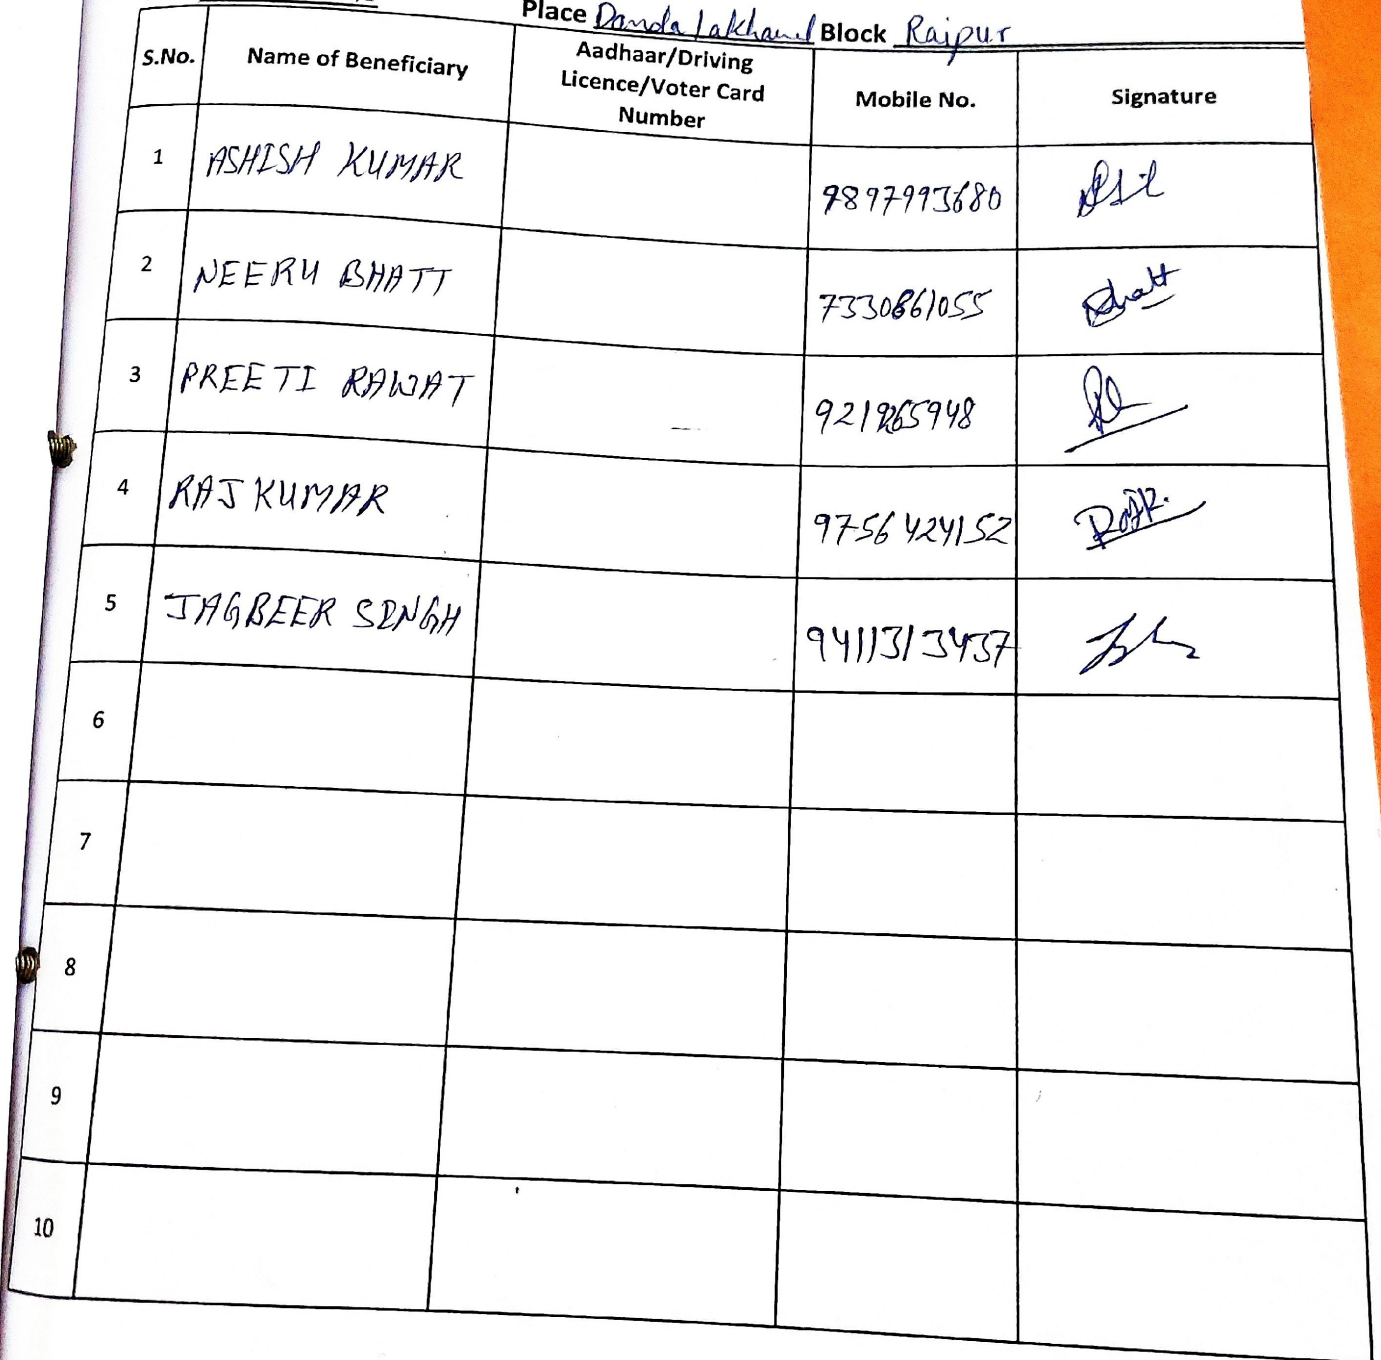 Place Danda Lakhaund Block Raipur
S.No. Name of Beneficiary Aadhaar/Driving Licence/Voter Card Number Mobile No. Signature
1 ASHISH KUMAR 9897993680
2 NEERU BHATT 7330861055 Bhatt
3 PREETI RAWAT
4 RAJ KUMAR 9756424152
5 JAGBEER SINGH 9411313437
6
7
8
9
10